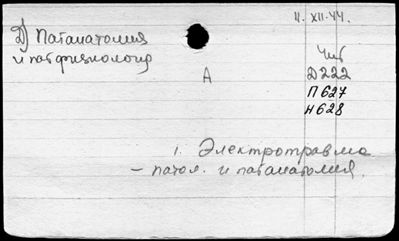 11. XII.44.
Д) Патанатомия
и патфизиология
Чит
А
Д222
П627
Н628
1. Электротравма
– патол. и патанатомия.